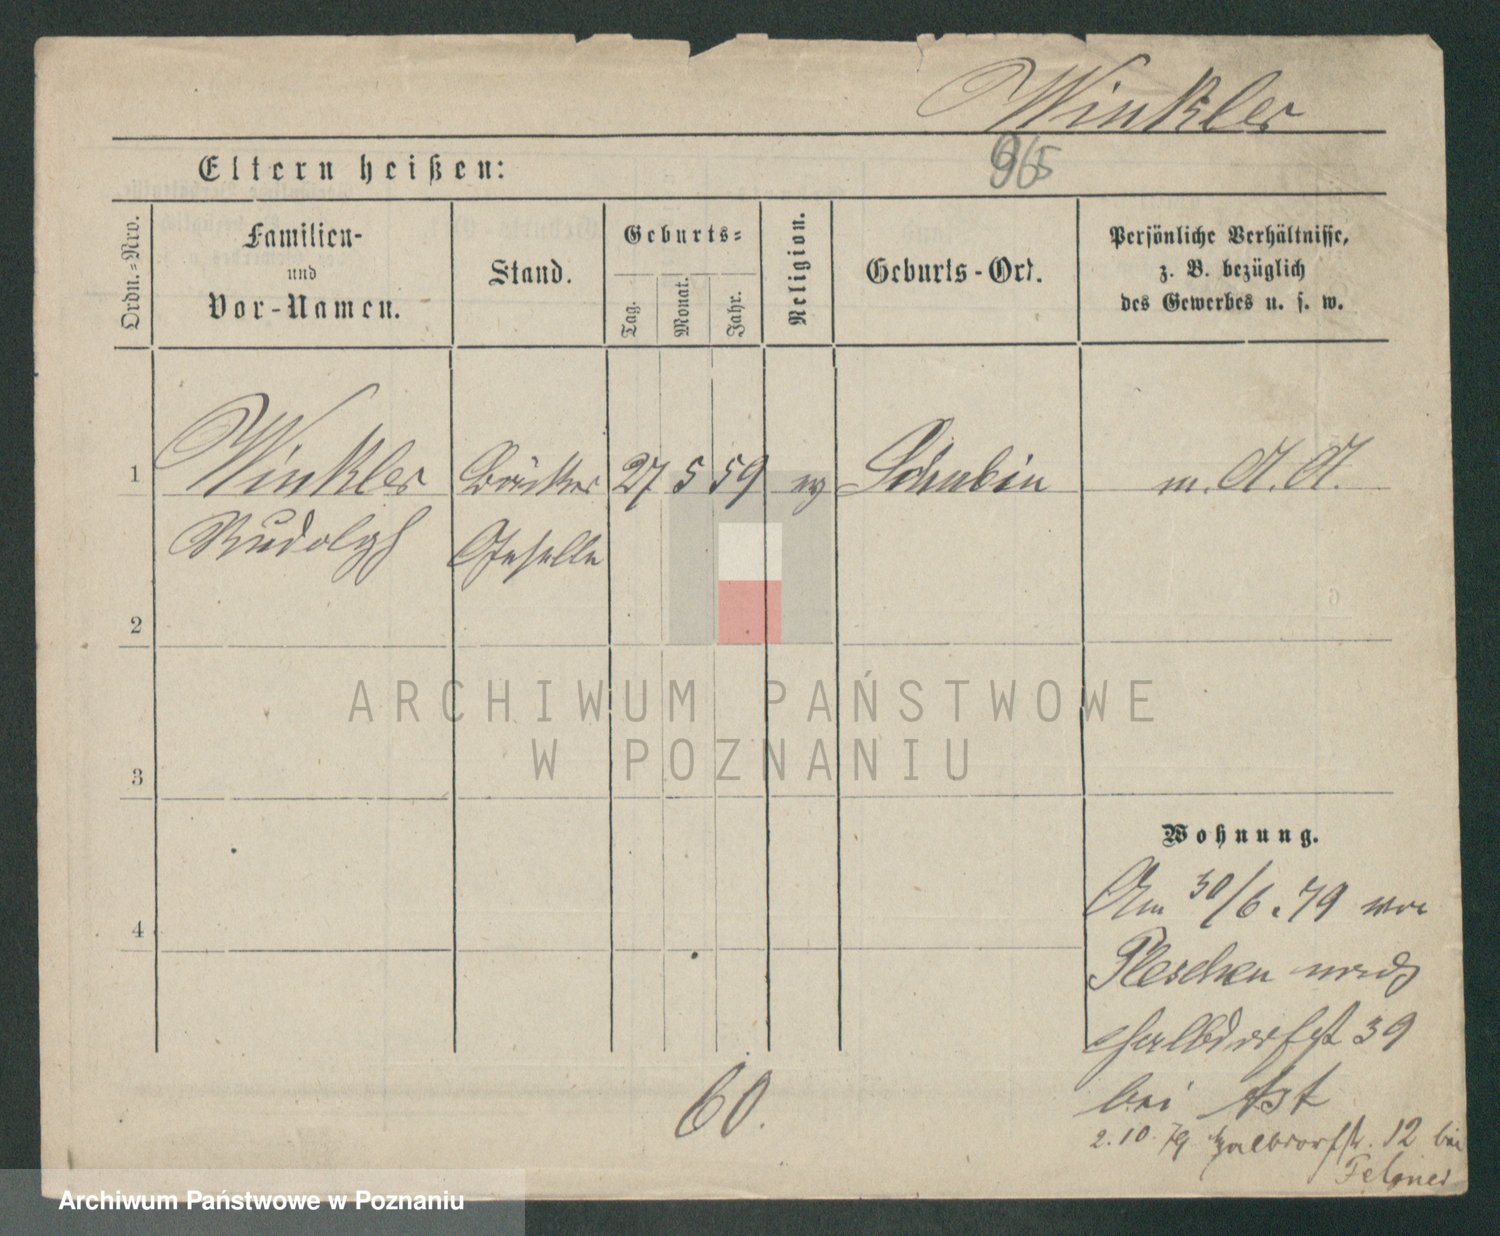 Winkler
965
Eltern heißen:
Ordn.-Nro.
Familien-
und
Vor-Namen.
Stand.
Geburts-
Tag.
Monat.
Jahr.
Religion.
Geburts-Ort.
Persönliche Verhältnisse,
z. B. bezüglich
des Gewerbes u. s. w.
1 Winkler Bäcker 27 5 59 ev Schubin m. A. A.
Rudolph Geselle
2
3
4
Wohnung.
Am 30/6.79 von
Pleschen nach
Halbdorfst 39
bei Ast
2.10.79 Halbdorfstr. 12 bei
60.
ARCHIWUM PAŃSTWOWE
W POZNANIU
Archiwum Państwowe w Poznaniu